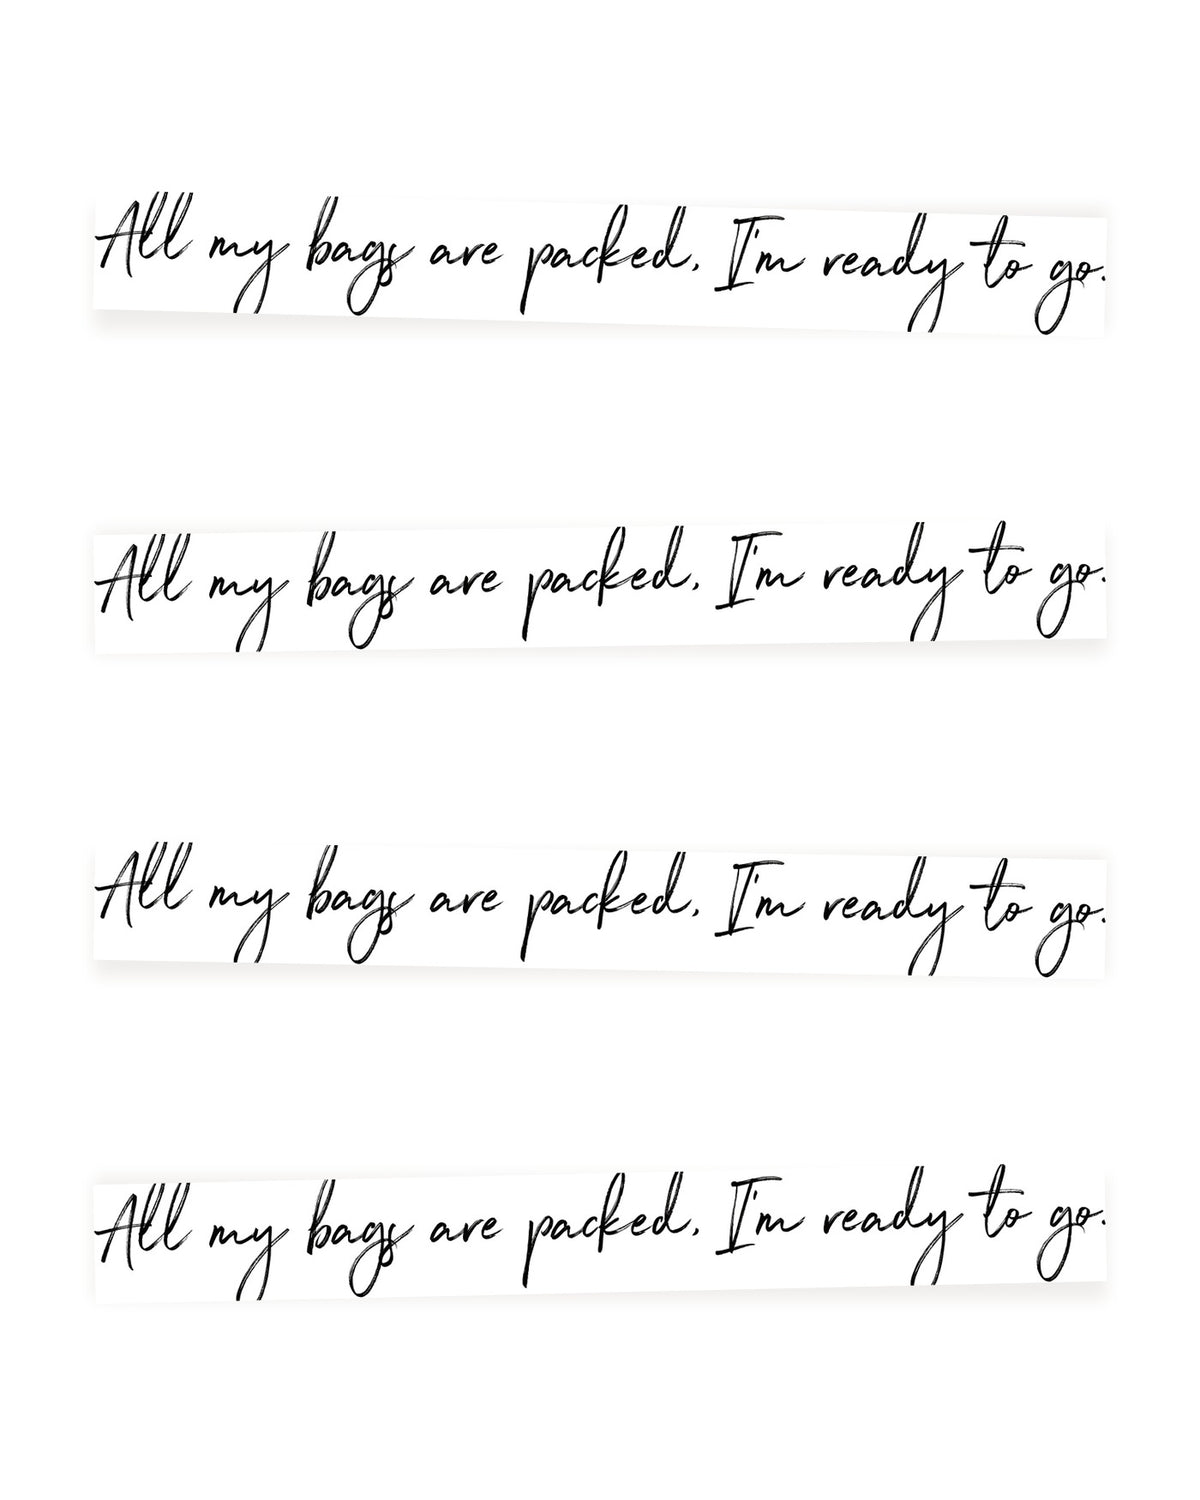 All my bags are packed, I'm ready to go.
All my bags are packed, I'm ready to go.
All my bags are packed, I'm ready to go.
All my bags are packed, I'm ready to go.